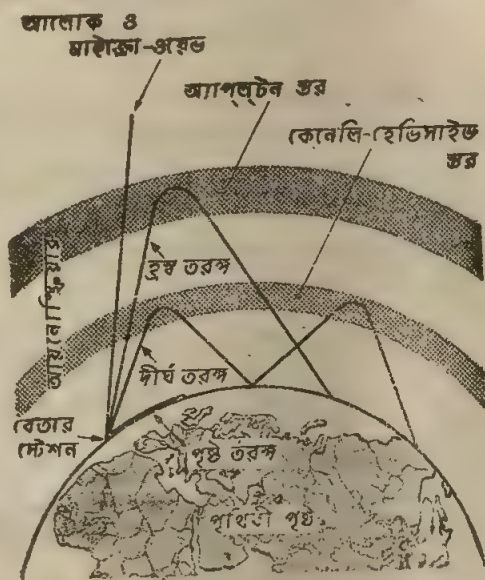 আলোক ও
মাইক্রো-ওয়েভ
অ্যাপ্‌ল্‌টন স্তর
কেনেলি-হেভিসাইড
স্তর
আয়নোস্ফিয়ার
হ্রস্ব তরঙ্গ
দীর্ঘ তরঙ্গ
বেতার
স্টেশন
পৃষ্ঠ তরঙ্গ
পৃথিবী পৃষ্ঠ